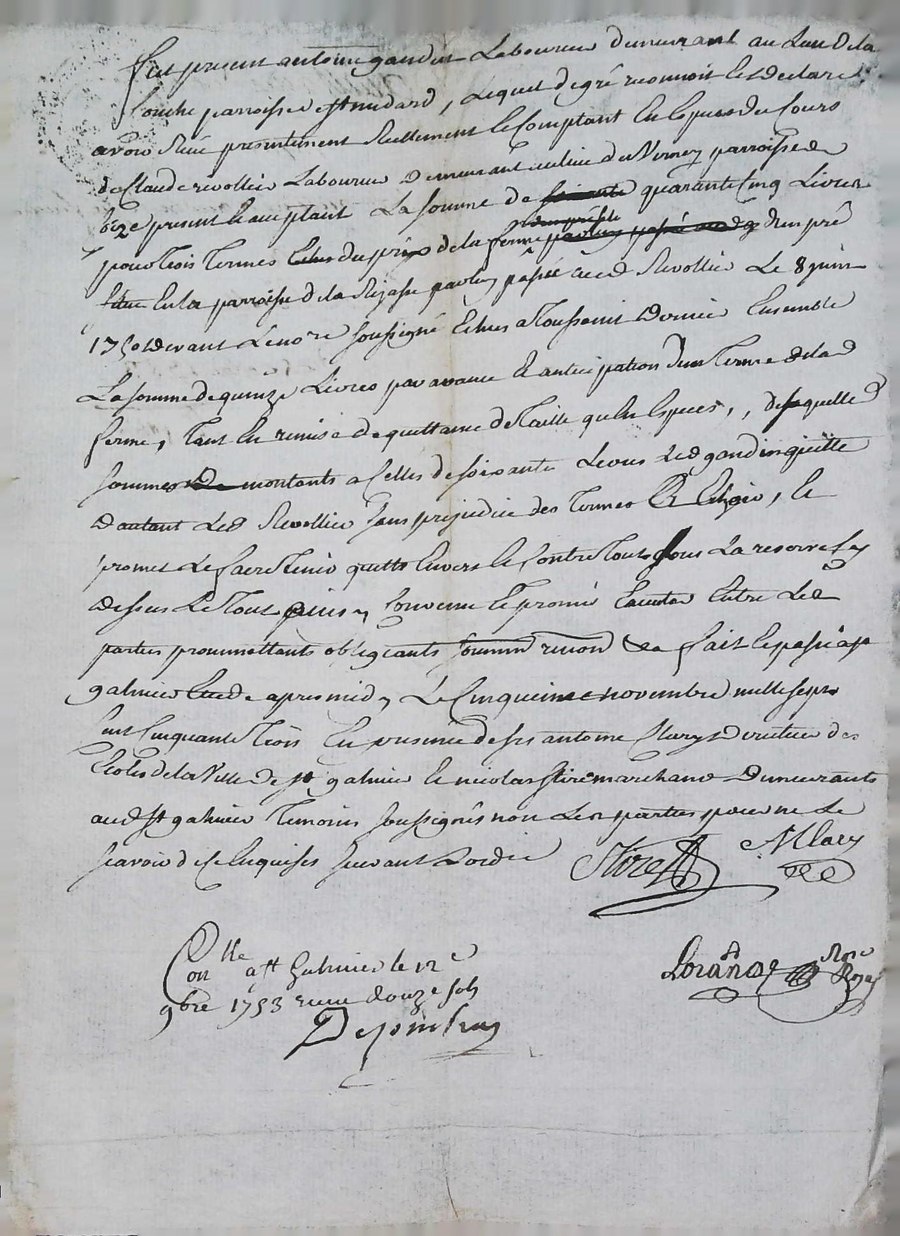 fut present antoine gandin Laboureur demeurant au Lieu de la
Conche parroisse st medard, Lequel de gré reconnoit et declare
avoir Receu presentement Reellement et Comptant En Espece du Cours
de Claude revollier Laboureur Demeurant au lieu du Verney parroisse de
present et acceptant La somme de soixante quarante Cinq Livres
pour trois Termes Echus du prix de la ferme d'un pré
En la parroisse de la passée aud Revollier Le 8 juin
1750 devant Le nore soussigné Echus a Toussaint Dernier Ensemble
La somme de quinze Livres par avance et anticipation d'un Terme de lad
ferme, Tant En remise de quittance de Taille qu'En Especes, desquelles
sommes montants a Celles de soixante Livres led gandin quitte
D'autant Led Revollier sans prejudice des Termes a Echoir, et
promet Le faire Tenir quitte Envers et Contre Tous sous La reserve
dessus Le Tout ainsy Convenu et promis Entre Les
parties prommettants obligeants soumm renon &a fait et passé a st
galmier apres midy Le Cinquieme novembre mille sept
Cent Cinquante Trois En presence de srs antoine directeur des
Ecoles de la Ville de st galmier et nicolas marchand Demeurants
aud st galmier Temoins soussignés non Les parties pour ne Le
scavoir de Ce Enquises suivant Lordce
Conlle a st Galmier le 12e
9bre 1753 receu douze sols
Nore
Royal